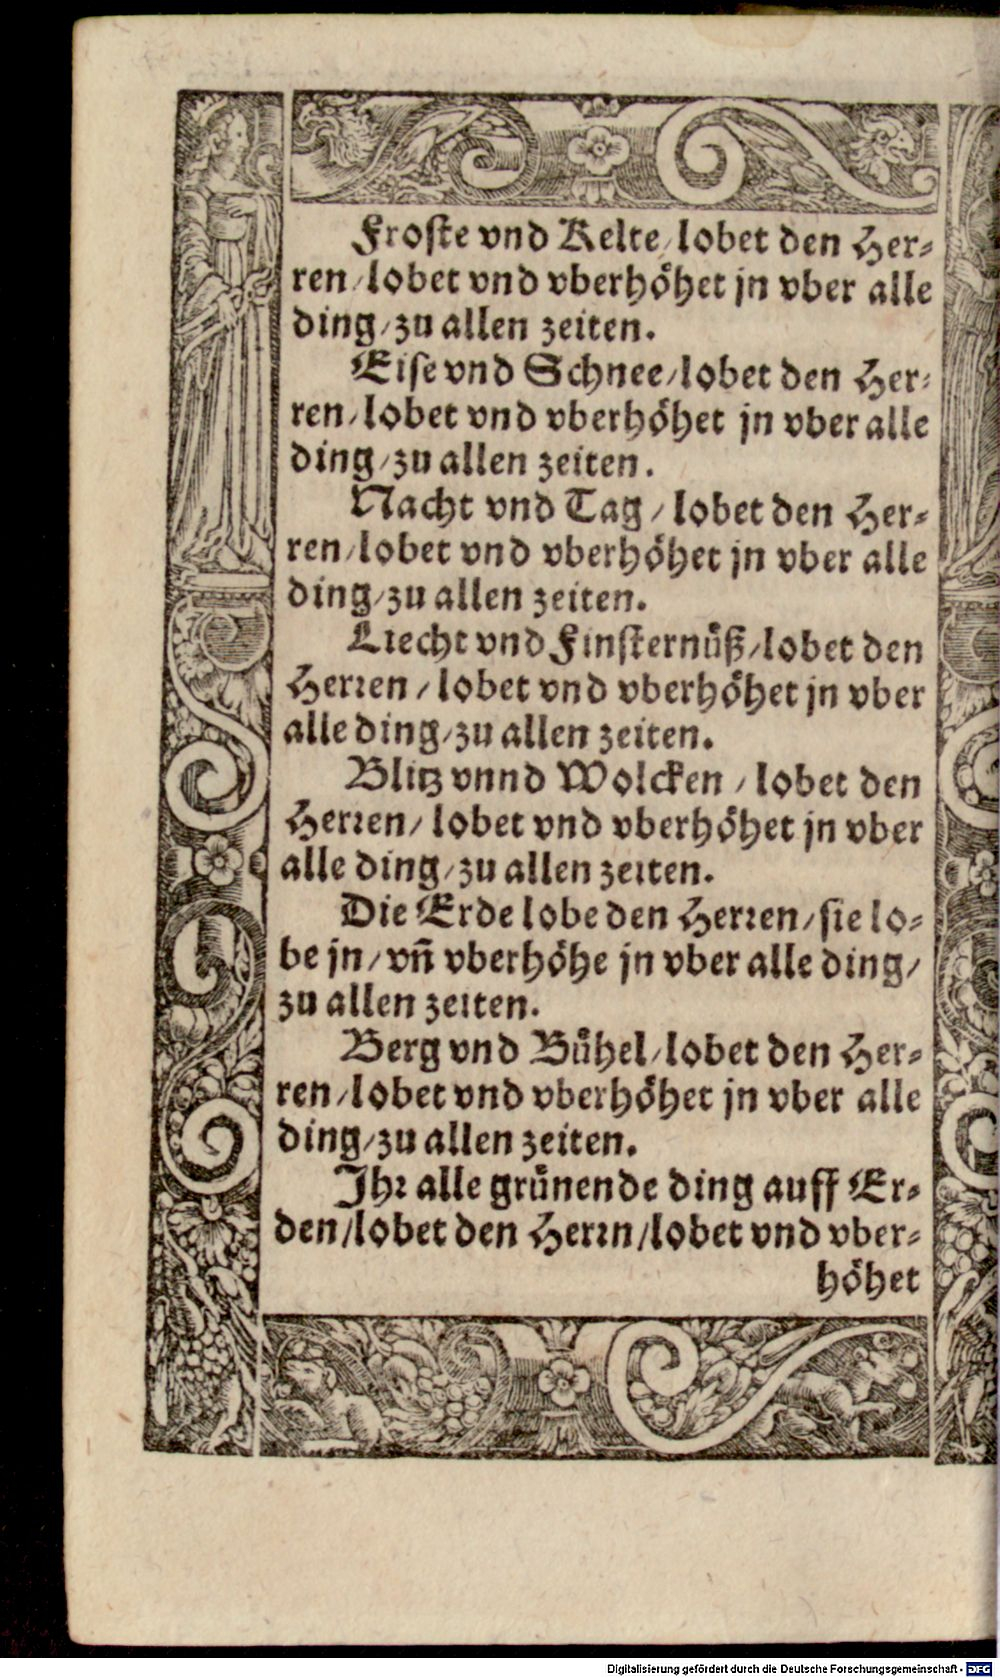 Froſte vnd Kelte / lobet den Her⸗
ren / lobet vnd vberhöhet jn vber alle
ding / zu allen zeiten.
Eiſe vnd Schnee / lobet den Her⸗
ren / lobet vnd vberhöhet jn vber alle
ding / zu allen zeiten.
Nacht vnd Tag / lobet den Her⸗
ren / lobet vnd vberhöhet jn vber alle
ding / zu allen zeiten.
Liecht vnd Finſternüß / lobet den
Herꝛen / lobet vnd vberhöhet jn vber
alle ding / zu allen zeiten.
Blitz vnnd Wolcken / lobet den
Herꝛen / lobet vnd vberhöhet jn vber
alle ding / zu allen zeiten.
Die Erde lobe den Herꝛen / ſie lo⸗
be jn / vñ vberhöhe jn vber alle ding /
zu allen zeiten.
Berg vnd Bühel / lobet den Her⸗
ren / lobet vnd vberhöhet jn vber alle
ding / zu allen zeiten.
Jhꝛ alle grünende ding auff Er⸗
den / lobet den Herꝛn / lobet vnd vber⸗
höhet
Digitalisierung gefördert durch die Deutsche Forschungsgemeinschaft - DFG